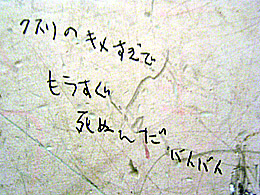 クスリのキメすぎで
もうすぐ
死ぬんだ バンバン